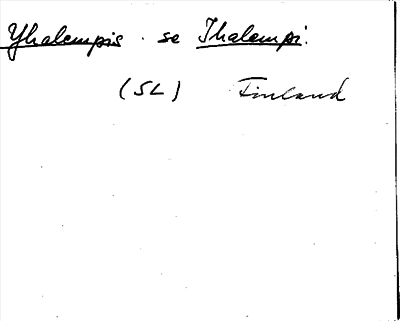 Yhalempis. se Ihalempi.
(SL) Finland